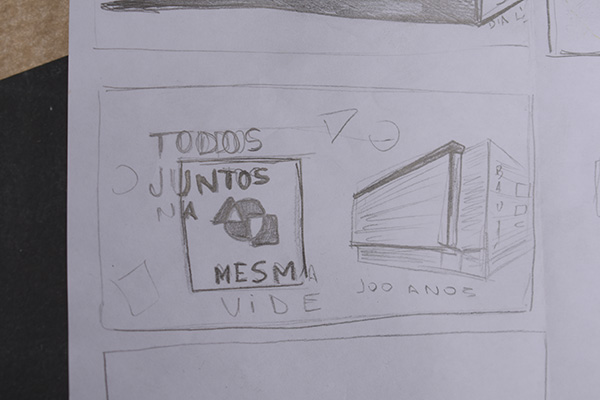 TODOS
JUNTOS
NA
MESMA
VIDE
100 ANOS